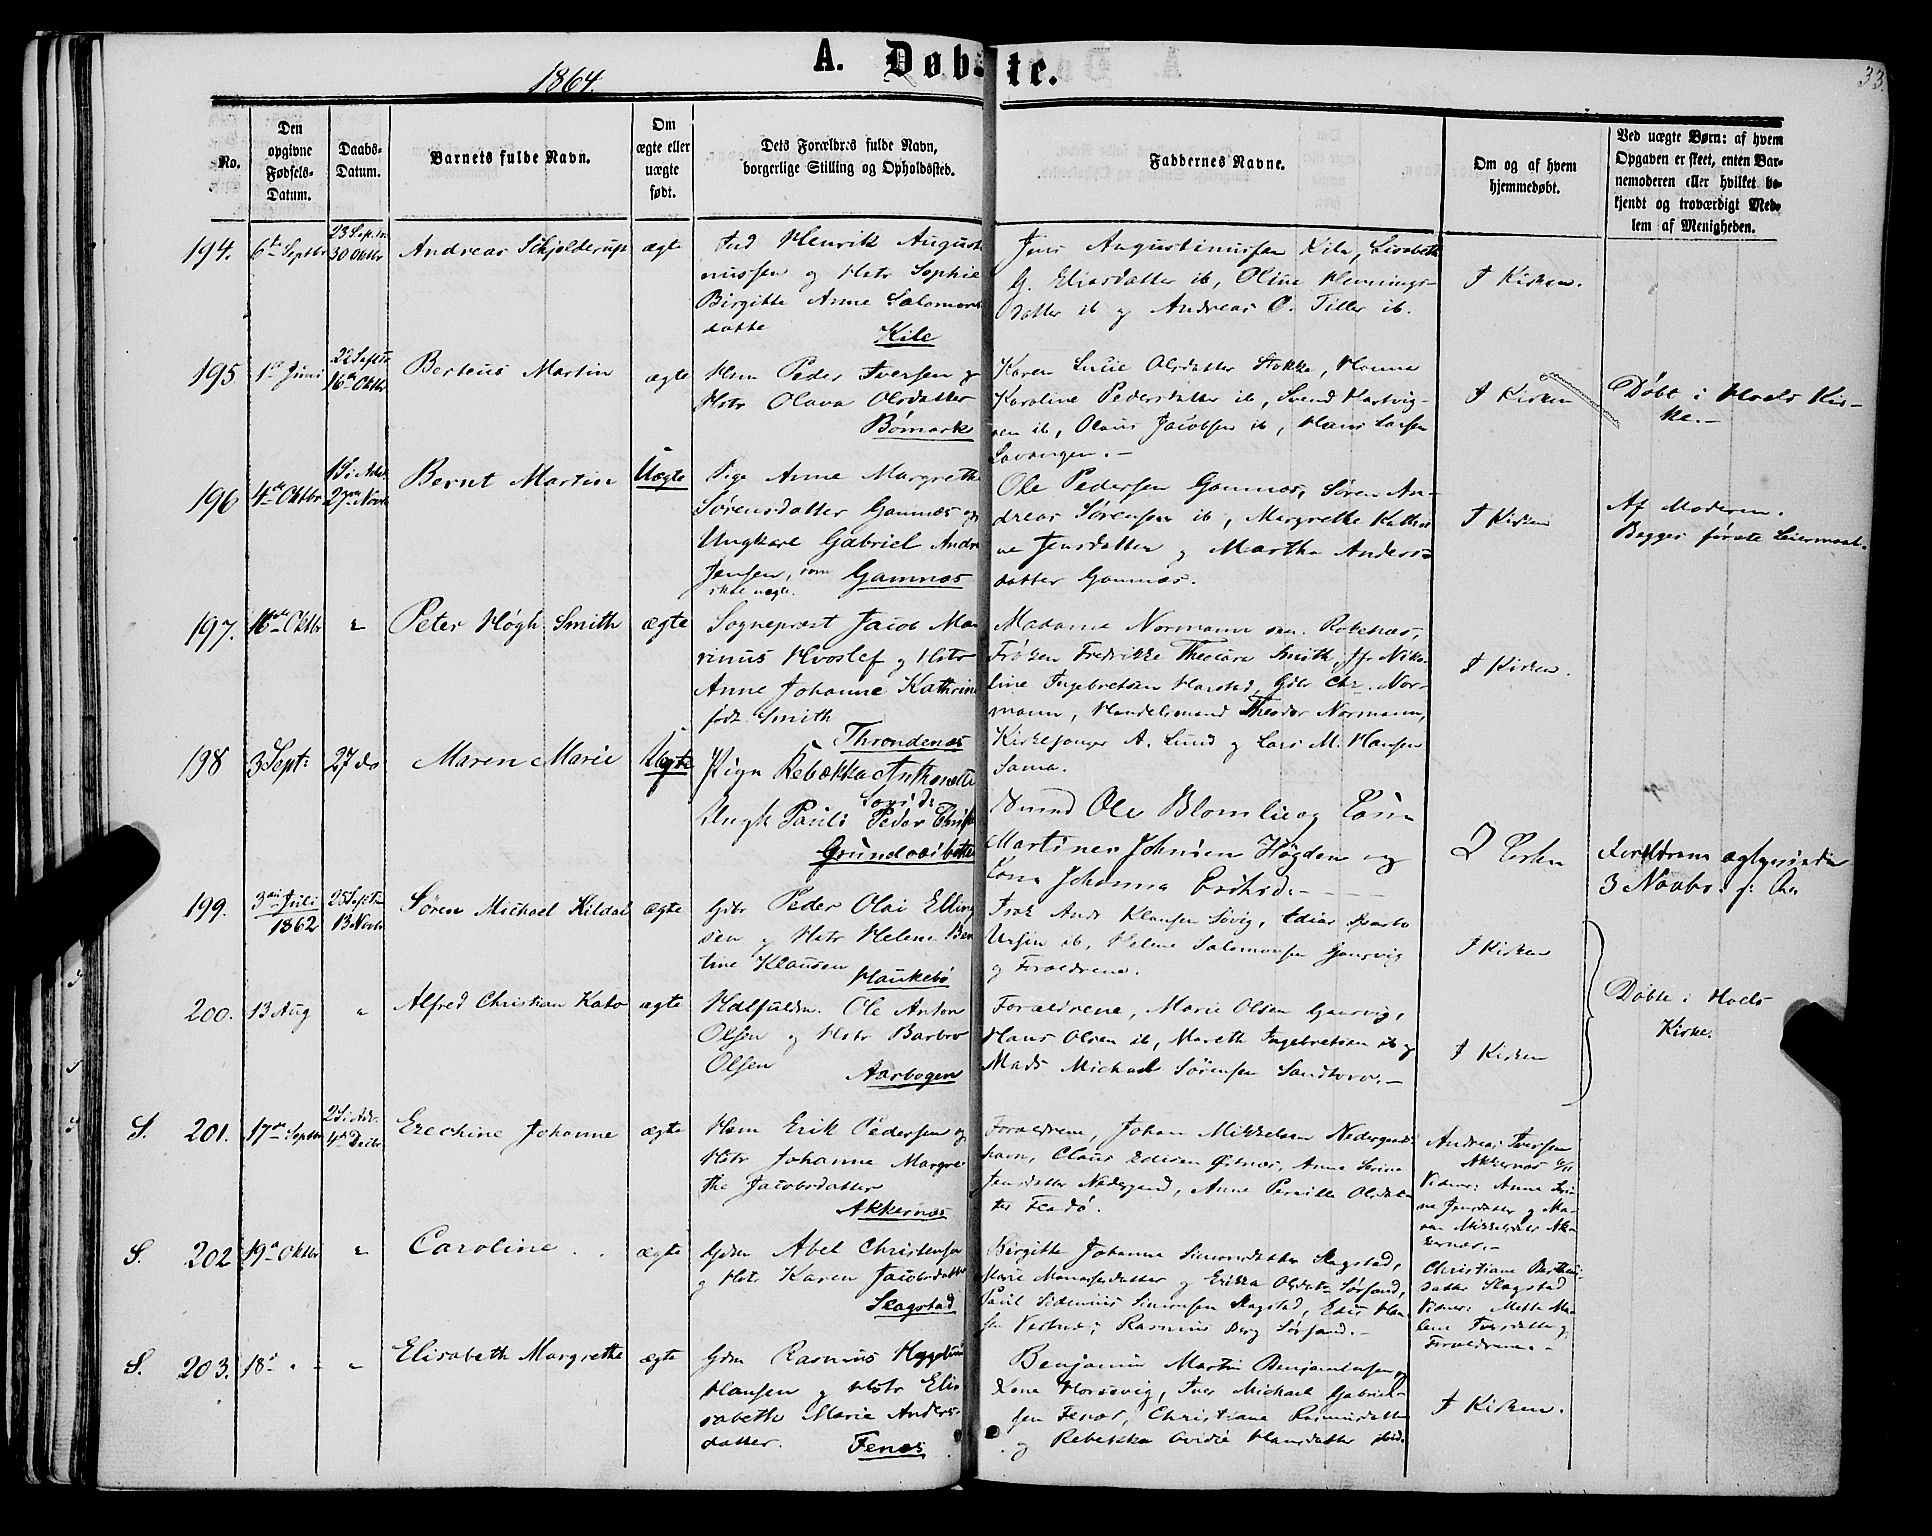 1864.
A. Døbte.
33.
No.
Den opgivne Fødsels-Datum.
Daabs-Datum.
Barnets fulde Navn.
Om ægte eller uægte født.
Dets Forældres fulde Navn, borgerlige Stilling og Opholdssted.
Faddernes Navne.
Om og af hvem hjemmedøbt.
Ved uægte Børn: af hvem Opgaven er skeet, enten Barnemoderen eller hvilket bekjendt og troværdigt Medlem af Menigheden.
194. 6te Septbr 23 Septbr 30 Oktbr Andreas Schjelderup ægte
Ind Henrik August
nussen og Hstr Sophie
Birgitte Anne Salomons
datte Kile
Jens Augustinussen Kile, Lisabeth
G. Eliasdatter ib, Oline Hennings-
datter ib og Andreas O. Tiller ib.
I Kirken.
195 1ste Juni 22 Septbr 16de Oktbr Berteus Martin ægte
Hsm Peder Iversen og
Hstr Olava Olsdatter
Bømark
Karen Lucie Olsdatter Stokke, Hanna
Karoline Pedersdatter ib, Svend Hartvig-
sen ib, Olaus Jacobsen ib, Hans Larsen
Lavangen.-
I Kirken
Døbt i Hols Kir-
ke.-
196 4de Oktbr 27de Novbr Bernt Martin Uægte
Pige Anne Margrethe
Sørensdatter Gamnæs og
Ungkarl Gabriel Andr
Jensen, som Gamnæs
ikke nægter.
Ole Pedersen Gamnæs, Søren An-
dreas Sørensen ib, Margrethe Kathri
ne Jensdatter og Martha Anders-
datter Gamnæs.
I Kirken
Af Moderen.
Begges første Leiermaal.
197. 16de Oktbr " Peter Høgh Smith ægte
Sognepræst Jacob Ma
rinus Hvoslef og Hstr
Anne Johanne Kathrine
født Smith
Throndenæs
Madame Normann sen. Rokenæs,
Frøken Fredrikke Theodora Smith, Fr. Niko-
line Ingebretsen Harstad, Gbr Chr. Nor-
mann, Handelsmand Theodor Normann,
Kirkesanger A. Lund og Lars M. Hansen
Sama.
I Kirken.
198 3 Septr 27 do Maren Marie Uægte
Pigen Rebækka Anthonette
Ungk Pauls Peder
Grundvasbotten
Ole Blomlie og
Martines Johnsen Høgden og
Kone Johanna
I Kirken
Forældrene
3 Novbr
199. 3die Juli 1862 25 Septbr 13 Novbr Søren Michael Kildal ægte
Gbr Peder Olai Elling
sen og Hstr Helene Ber
tine Klausen Haukebø
And. Klausen Søvig,
Ursin ib, Helene Salomonsen Gausvig
og Forældrene.
I Kirken
200. 13 Aug " Alfred Christian Kato ægte
Ole Anton
Olsen og Hstr Barbro
Olsen Aarbogen
Forældrene, Marie Olsen Gausvig,
Hans Olsen ib, Mareth Ingebretsen ib og
Mads Michael Sørensen Sandtorv.-
I Kirken
Døbte i Hols
Kirke.
S. 201. 17de Septbr 4de Decbr Erechine Johanne ægte
Hsm Erik Pedersen og
Hstr Johanne Margre
the Jacobsdatter
Akkernæs
Forældrene, Johan Mikkelsen Nedergaards
havn, Claus Edisen Østnæs, Anne Serine
Jensdatter Nedergaard, Anne Pernille Olsdat
ter Fladø.
Andreas Iversen
Akkernæs
Vidner: Anne Seri-
ne Jensdatter og Ma-
ren Mikkelsdatter Ak-
kernæs.-
S. 202 19de Oktbr " Caroline ægte
Gdm Abel Christensen
og Hstr Karen Jacobsdatter
Slagstad
Birgitte Johanna Simonsdatter Slagstad,
Marie Monasesdatter og Erikka Olsdatter Sørsand,
Paul Sidenius Simonsen Slagstad, Edis Han-
sen Rasmus Berg Sørsand.-
Christiane Bertheus-
datter Slagstad
Vidner: Mette Ma-
lene Iversdatter og
Forældrene.-
S. 203. 18de " " Elisabeth Margrethe ægte
Gdm Rasmus Hygelund
Hansen og Hstr Elis
sabeth Marie Anders-
datter. Fenes
Benjamin Martin Benjaminsen og
Lene Horsevig, Iver Michael Gabriel-
sen Fenes, Christiane Rasmusdatter
og Rebekka Ovidie Hansdatter ibid.
I Kirken.